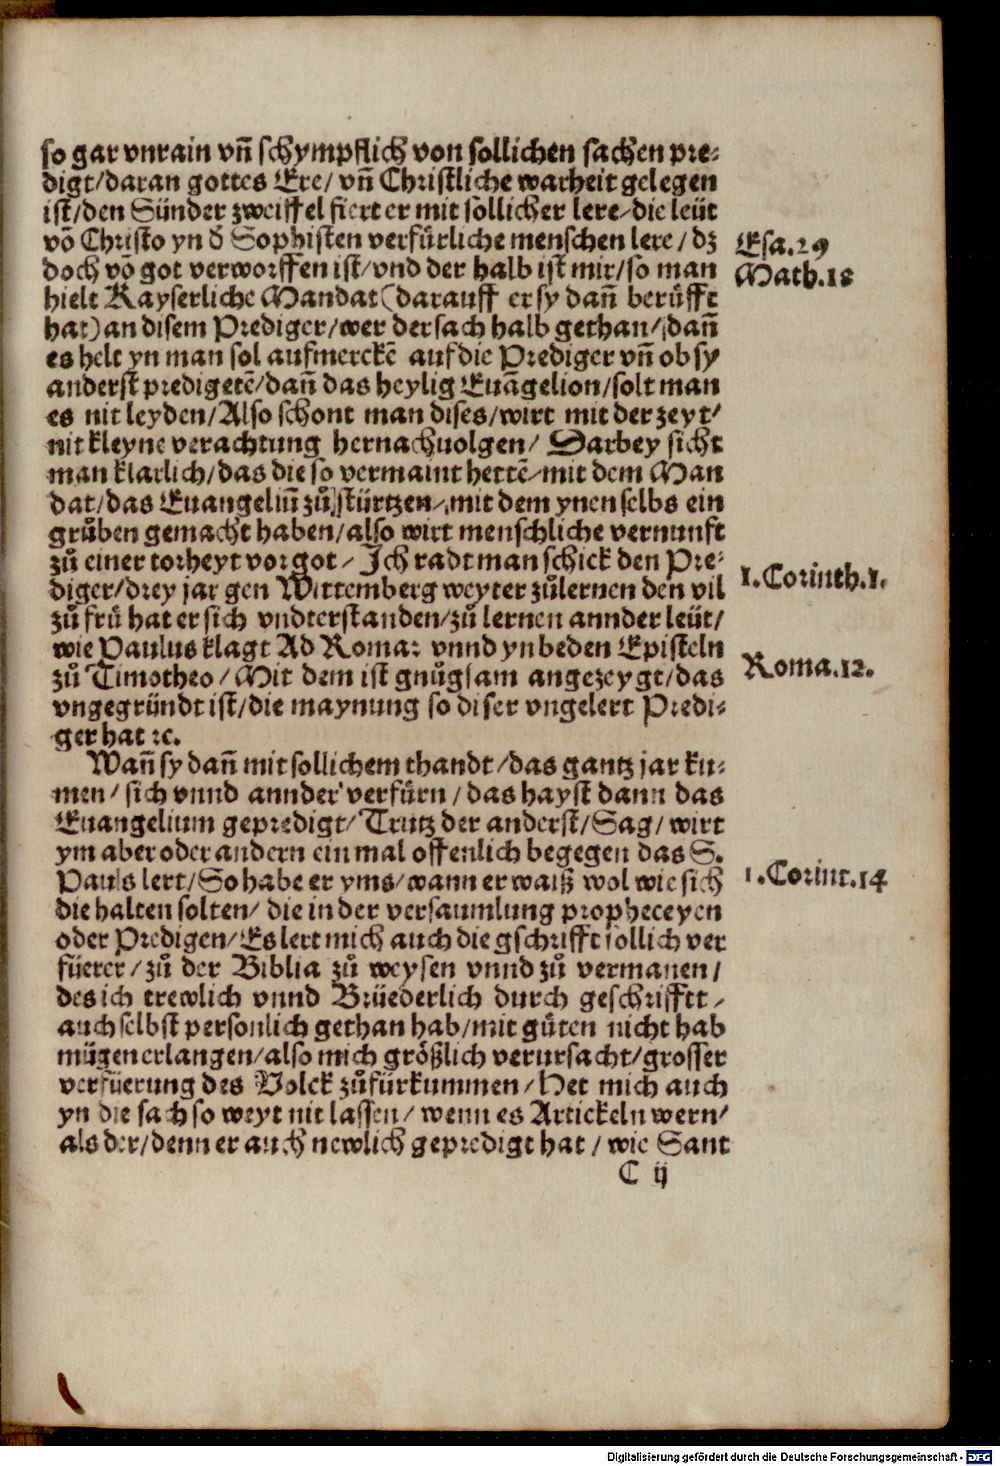 so gar vnrain vn̄ schympflich von sollichen sachen pre⸗
digt/daran gottes Ere/ vn̄ Christliche warheit gelegen
ist/den Sünder zweiffel fiert er mit sollicher lere/die leüt
vō Christo yn d̄ Sophisten verfürliche menschen lere/ dz
doch vō got verworffen ist/vnd der halb ist mir/so man
hielt Kayserliche Mandat (darauff er sy dan̄ berüfft
hat) an disem Prediger/wer der sach halb gethan/ dan̄
es helt yn man sol aufmerckē auf die Prediger vn̄ ob sy
anderst predigetē/dan̄ das heylig Euāgelion/solt man
es nit leyden/Also schont man dises/wirt mit der zeyt/
nit kleyne verachtung hernachuolgen/ Darbey sicht
man klarlich/das die so vermaint hettē/mit dem Man
dat/das Euangeliū zů stürtzen/mit dem ynen selbs ein
grůben gemacht haben/also wirt menschliche vernunft
zů einer torheyt vor got/ Ich radt man schick den Pre⸗
diger/drey jar gen Wittemberg weyter zůlernen den vil
zů frü hat er sich vndterstanden/zů lernen annder leüt/
wie Paulus klagt Ad Roma: vnnd yn beden Episteln
zů Timotheo/ Mit dem ist gnůgsam angezeygt/das
vngegründt ist/die maynung so diser vngelert Predi⸗
ger hat ꝛc.
Wan̄ sy dan̄ mit sollichem thandt/das gantz jar ku⸗
men/ sich vnnd annder verfürn/das hayst dann das
Euangelium gepredigt/ Trutz der anderst/Sag/ wirt
ym aber oder andern ein mal offenlich begegen das S.
Pauls lert/So habe er yms/wann er waiß wol wie sich
die halten solten/ die in der versaumlung propheceyen
oder Predigen/Es lert mich auch die gschrifft sollich ver
füerer/zů der Biblia zů weysen vnnd zů vermanen/
des ich trewlich vnnd Brüederlich durch geschrifft/
auch selbst personlich gethan hab/mit güten nicht hab
mügen erlangen/also mich größlich verursacht/grosser
verfüerung des Volck zůfürkummen/Het mich auch
yn die sach so weyt nit lassen/ wenn es Artickeln wern/
als der/denn er auch newlich gepredigt hat/ wie Sant
C ij
Esa.29
Math.18
1.Corinth.1.
Roma.12.
1.Corint.14
Digitalisierung gefördert durch die Deutsche Forschungsgemeinschaft - DFG